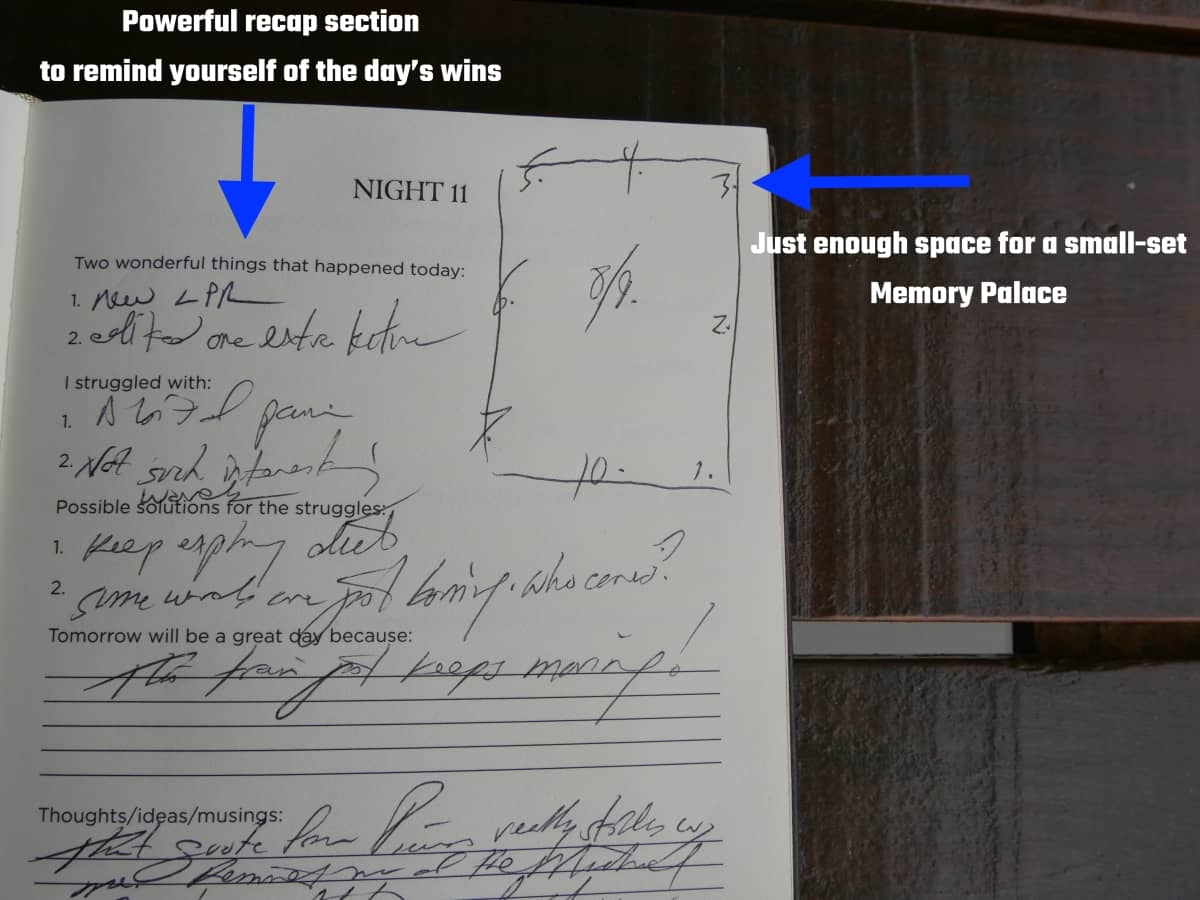 Powerful recap section
to remind yourself of the day's wins
NIGHT 11
5. 4. 3.
Just enough space for a small-set
Memory Palace
Two wonderful things that happened today:
1. New
8/9.
6.
2.
2. edited one extra lecture
I struggled with:
1. A bit of pain
7.
2. Not such interesting
10. 1.
words
Possible solutions for the struggles:
1. Keep diet
2. Some words are just boring. Who cares?
Tomorrow will be a great day because:
The train just keeps moving!
Thoughts/ideas/musings:
That quote from really sticks w/
me. Reminds me of the Michael